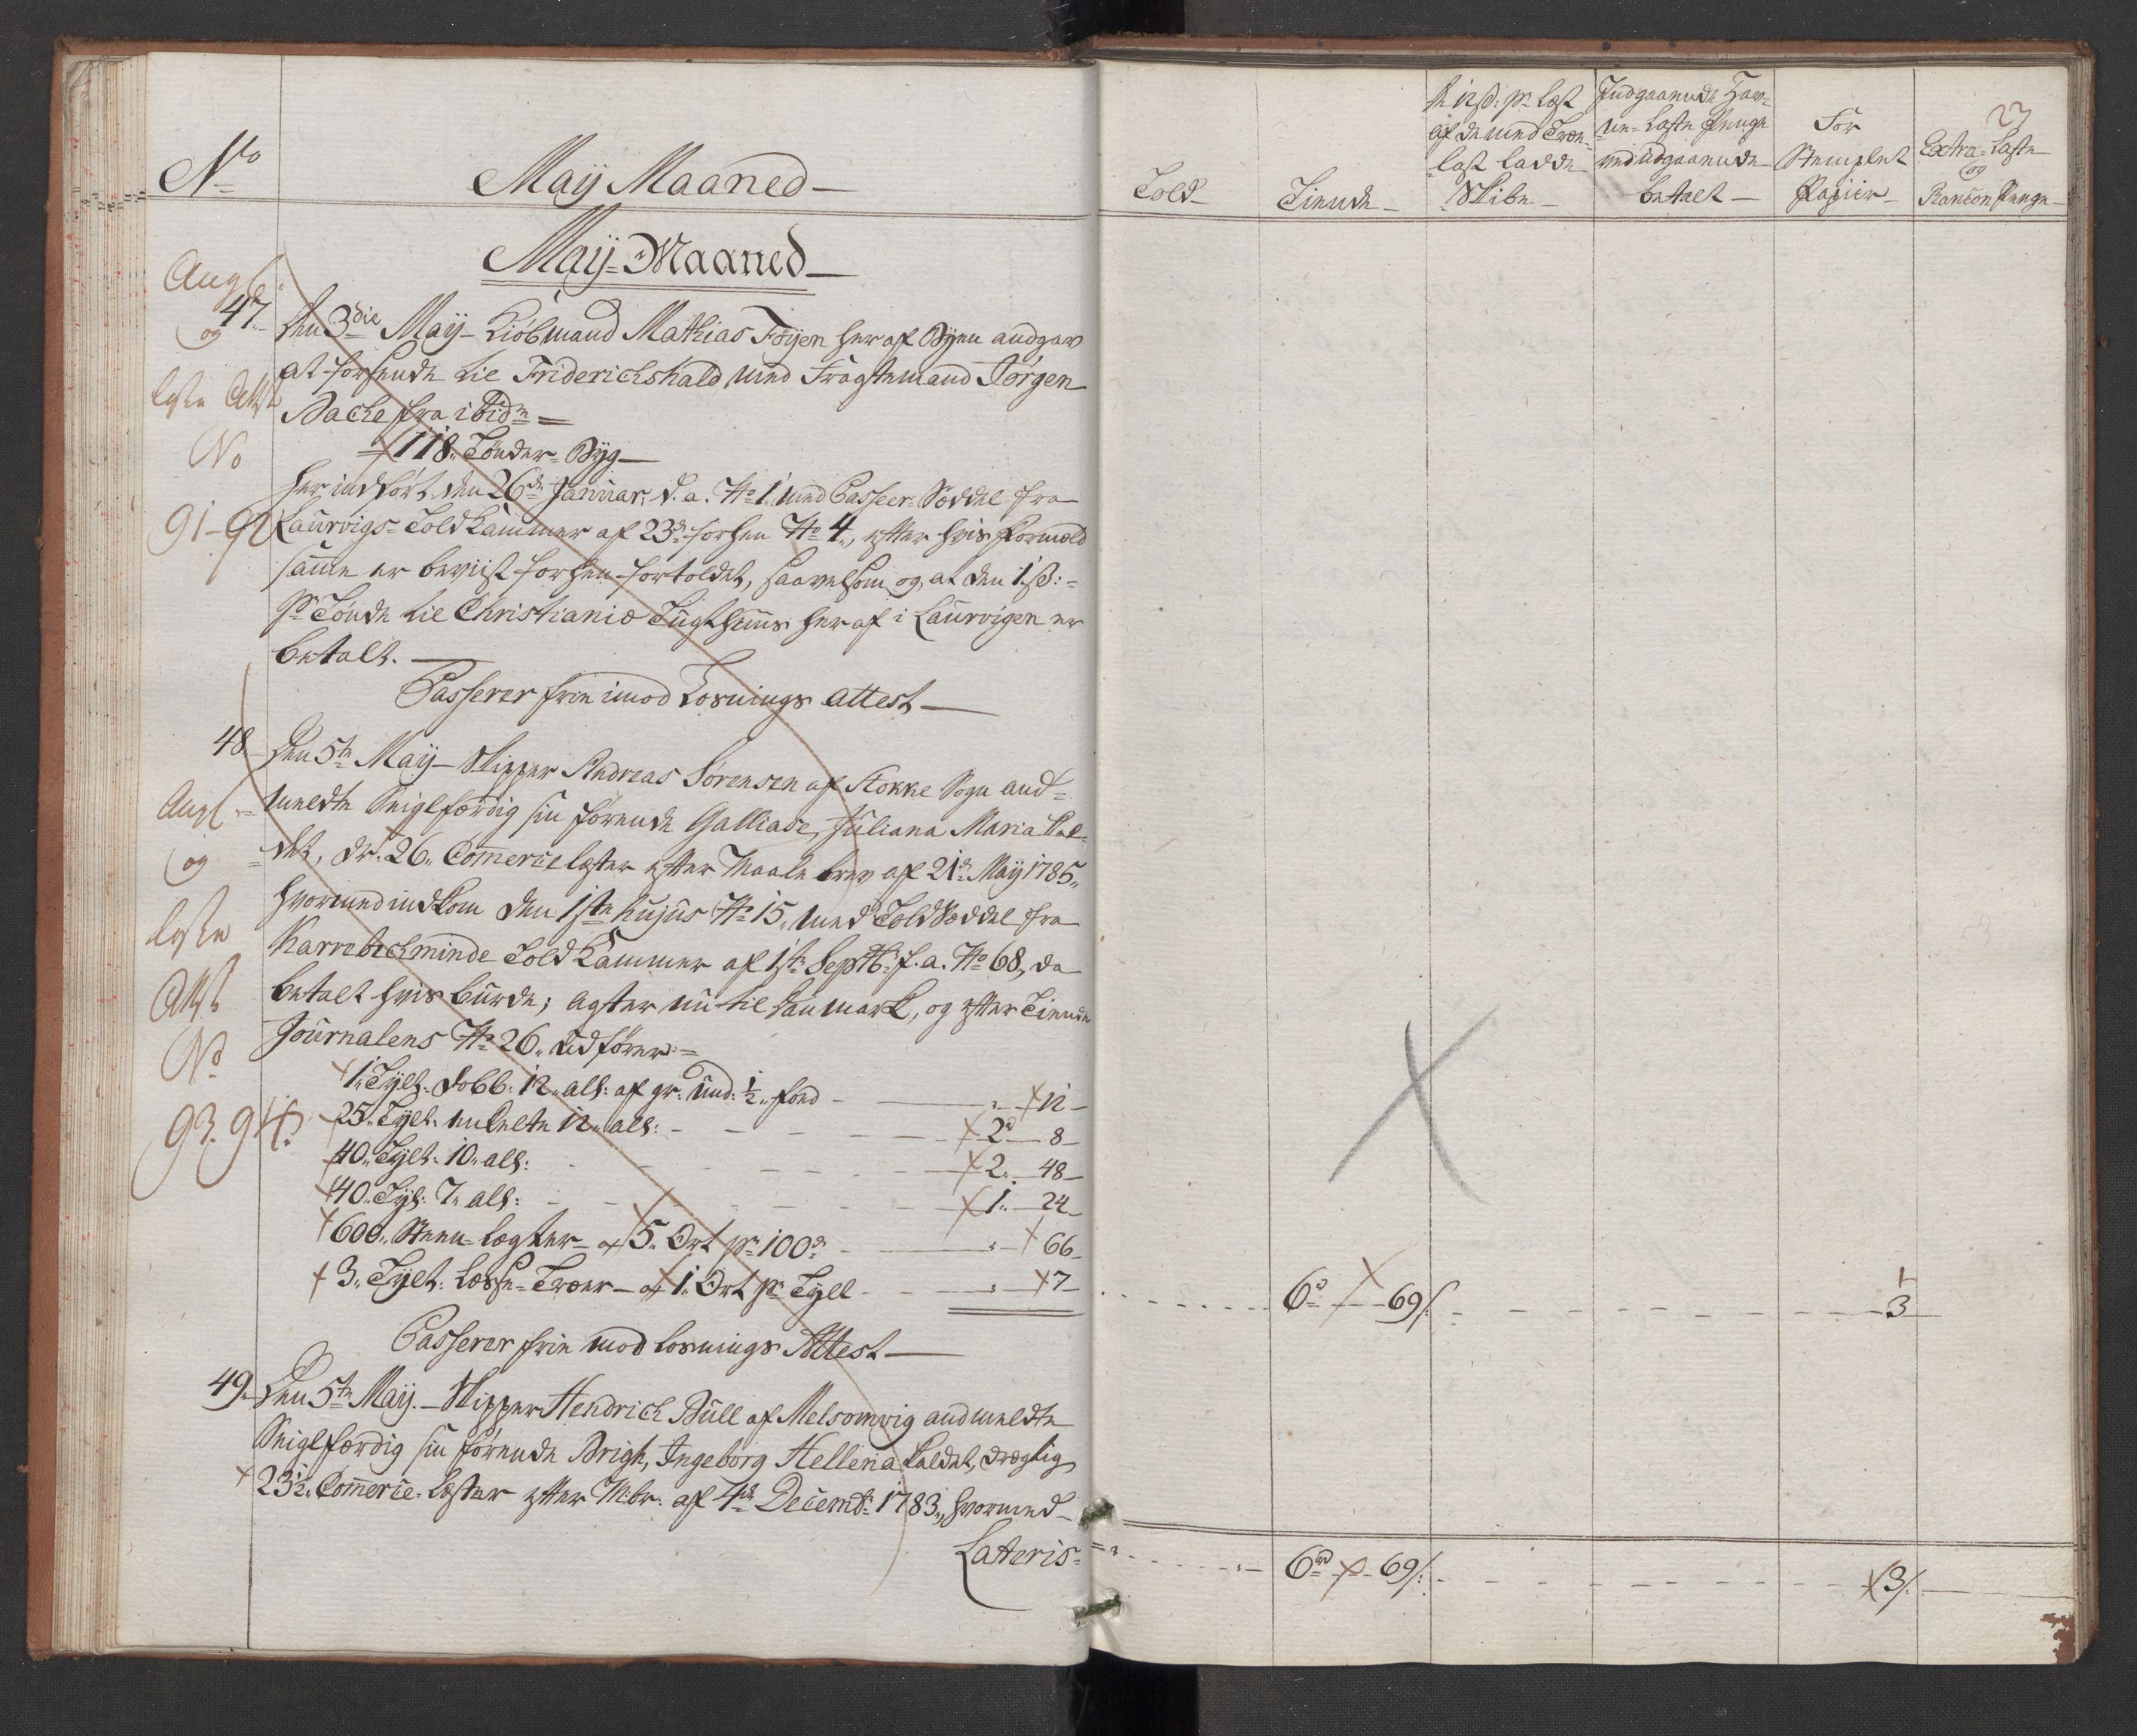 No
May Maaned
May Maaned
Angl
og
losse Attst
No
91-92
47. Den 3die May Kiøbmand Mathias Føyen her af Byen andgav
at forsende til Friderichshald med Fragtemand Jørgen
Bache fra ibidm
118. Tønder Byg
her indført den 26de Januar d. a. No 1. med Passeer-Seddel fra
Laurvigs Toldkammer af 23de forhen No 4, efter hvis Formeld
samme er beviist forhen fortoldet, saavelsom og at den 1 ß:
pr Tønde til Christiania Tugthuus her af i Laurvigen er
betalt.
Passerer frie imod Losnings Attest
Angl
og
losse
Attst
No
93. 94.
48 Den 5te May Skipper Andreas Sørensen af Stokke Sogn and-
meldte Seiglfærdig sin førende Galliase, Juliana Maria kal-
det, dr. 26. Commercelæster efter Maalebrev af 21de May 1785,
hvormed indkom den 1ste hujus No 15. med Toldseddel fra
Karrebechminde Told Kammer af 1ste Septbr f. a. No 68, da
betalt hvis burde; agter nu til Danmark, og efter Tiende
Journalens No 26. udfører
1. Tylt. dobb. 12 al: af gr. und. 1/2. - 12
25. Tylt. enkelte 12 al: 2d 8
40. Tylt. 10. al: 2. 48
40. Tylt. 7. al: 1. 24
600. Steen-Lægter a 5. Ort pr 100d 66
3. Tylt. Losse-Træer a 1 Ort pr Tylt 7
Passerer frie mod losnings Attest
49. Den 5te May. Skipper Hendrich Bull af Melsomvig andmeldte
Seiglfærdig sin førende Brigh, Ingeborg Hellena kaldet, drægtig
23 1/2. Commerce-Læster efter M:br: af 4de Decembr 1783, hvormed
Lateris
Told
Tiende
12 ß: pr Læst
af de med Træ-
last ladde
Skibe
Indgaaende Hav-
ne-Laste Penge
ved udgaaende
betalt
For
Stemplet
Papiir
27
Extra-Laste
og
Rançon Penge
6d 69 ß
3
6rd 69 ß
3 ß